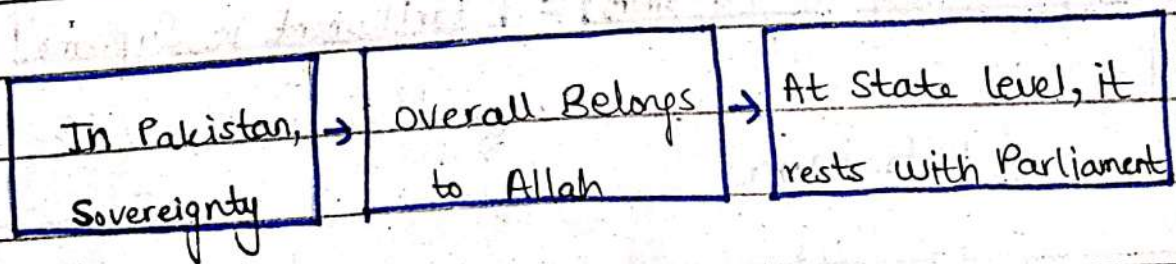 In Pakistan,
Sovereignty
→
overall Belongs
to Allah
→
At State level, it
rests with Parliament